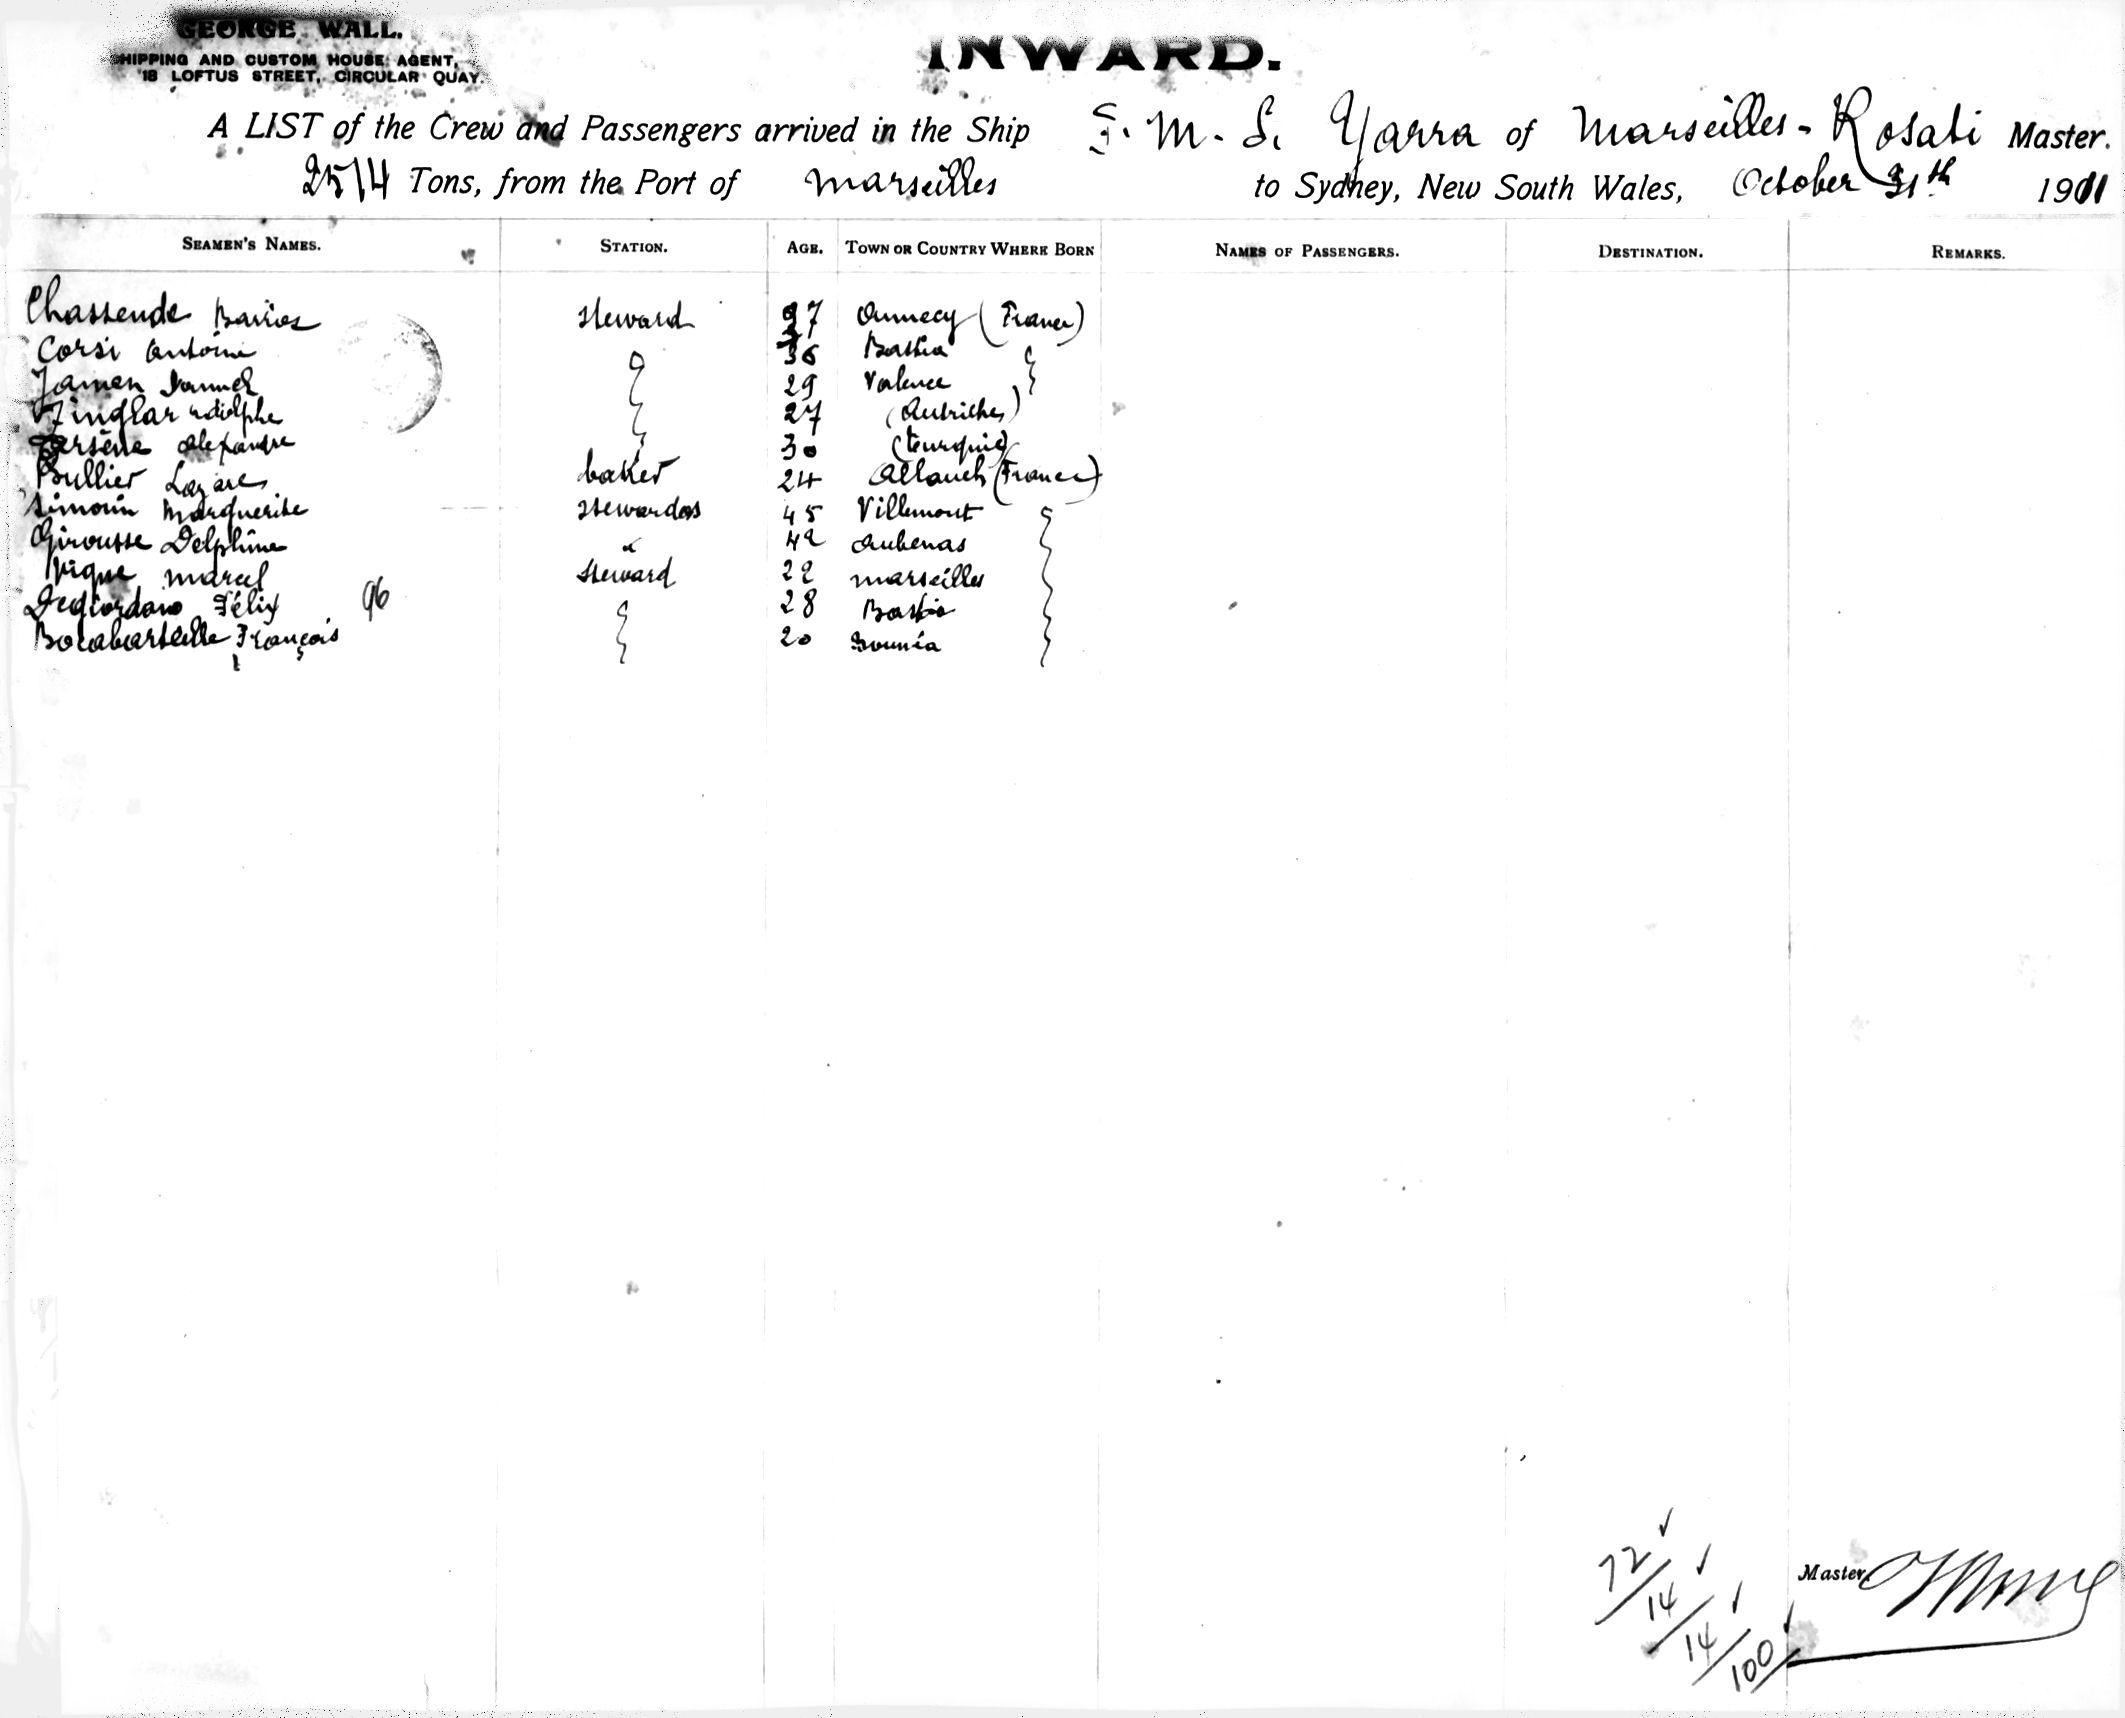 GEORGE WALL.
SHIPPING AND CUSTOM HOUSE AGENT,
18 LOFTUS STREET, CIRCULAR QUAY.
INWARD.
A LIST of the Crew and Passengers arrived in the Ship F. M. S. Yarra of Marseilles - Rosati Master.
2514 Tons, from the Port of Marseilles to Sydney, New South Wales, October 31th 1911
SEAMEN'S NAMES. STATION. AGE. TOWN OR COUNTRY WHERE BORN NAMES OF PASSENGERS. DESTINATION. REMARKS.
Chassende Steward 27 Annecy (France)
Corsi Antoine 36 Bastia
29 Valence
Adolphe 27 (Autriche)
Arsène Alexandre 30 (turquie)
Bullier Lazare baker 24 Allauch (France)
Simonin Marguerite Stewardess 45 Villemont
Girousse Delphine " 42 Aubenas
Vique Marcel Steward 22 Marseilles
Degiordano Félix 96 28 Bastia
François 20
72
14
14
100
Master